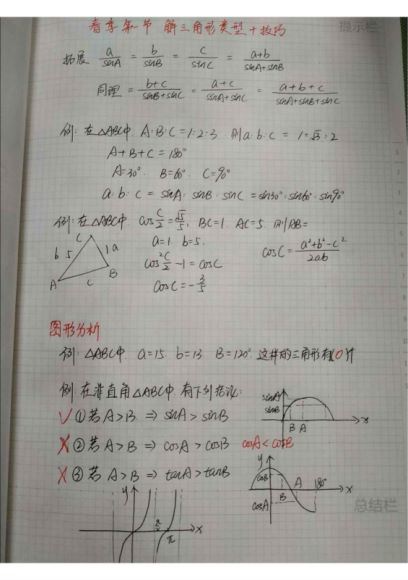 春季第一节 解三角形类型+技巧
提示栏
拓展 a/sinA = b/sinB = c/sinC = a+b/sinA+sinB
同理 = b+c/sinB+sinC = a+c/sinA+sinC = a+b+c/sinA+sinB+sinC
例: 在△ABC中 A:B:C=1:2:3 则a:b:c = 1:√3:2
A+B+C=180°
A=30° B=60° C=90°
a:b:c = sinA:sinB:sinC = sin30°:sin60°:sin90°
例: 在△ABC中 cos C/2 = √5/5, BC=1 AC=5 则AB=
a=1 b=5
cos² C/2 -1 = cosC
cosC = -3/5
cosC = a²+b²-c²/2ab
C
b 5
1 a
A
c
B
图形分析
例: △ABC中 a=15 b=13 B=120° 这样的三角形有0个
例 在非直角△ABC中 有下列结论:
√ ① 若A>B ⇒ sinA>sinB
✗ ② 若A>B ⇒ cosA>cosB cosA<cosB
✗ ③ 若A>B ⇒ tanA>tanB
sinA
sinB
B A
x
y
cosB
cosA
B
A
180°
x
y
π/2
π
x
总结栏